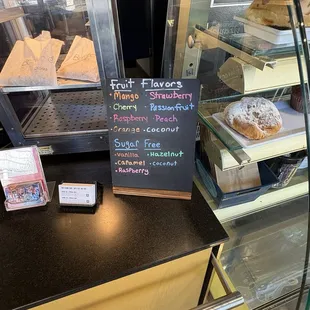 Fruit Flavors
•Mango •Strawberry
•Cherry •Passionfruit
•Raspberry •Peach
•Orange •Coconut
Sugar Free
•Vanilla •Hazelnut
•Caramel •Coconut
•Raspberry